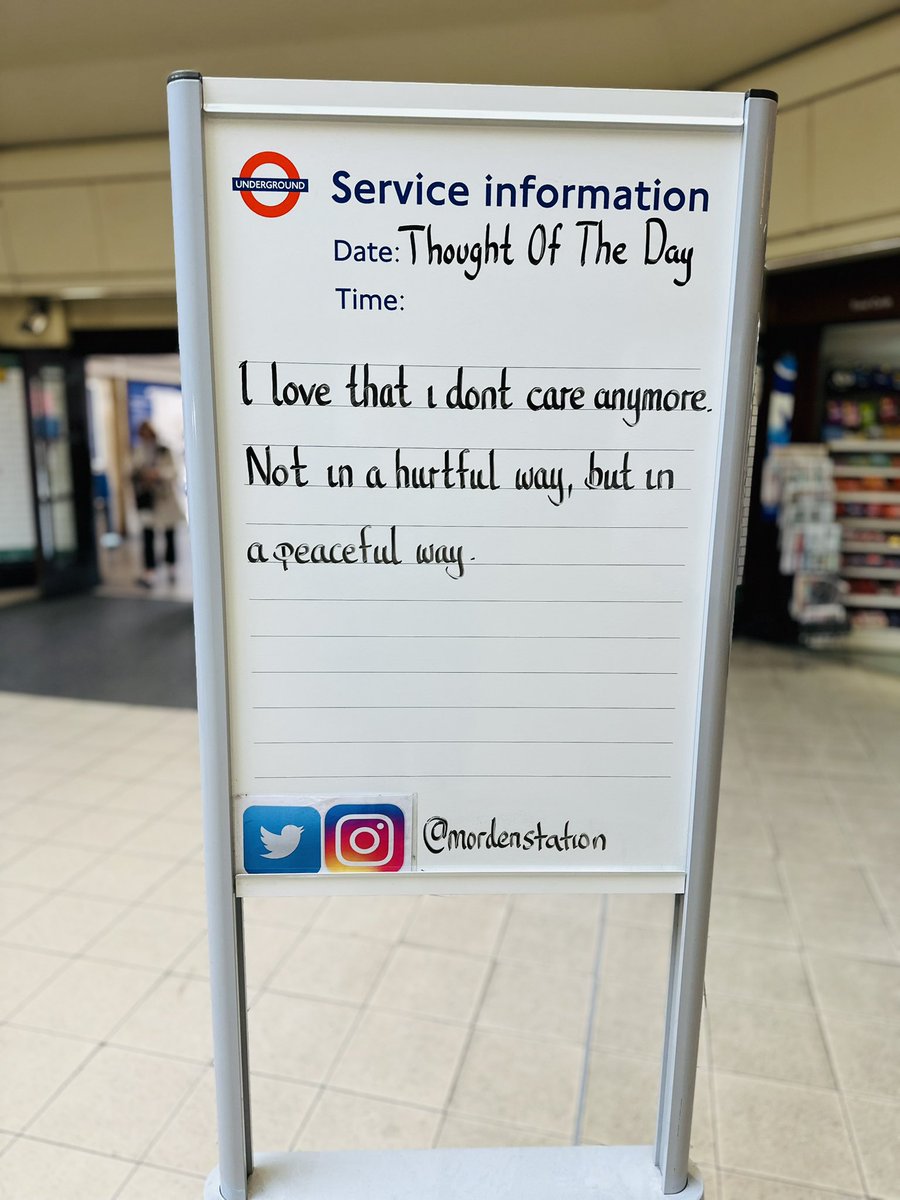 UNDERGROUND
Service information
Date: Thought Of The Day
Time:
I love that i dont care anymore.
Not in a hurtful way, but in
a peaceful way.
@mordenstation